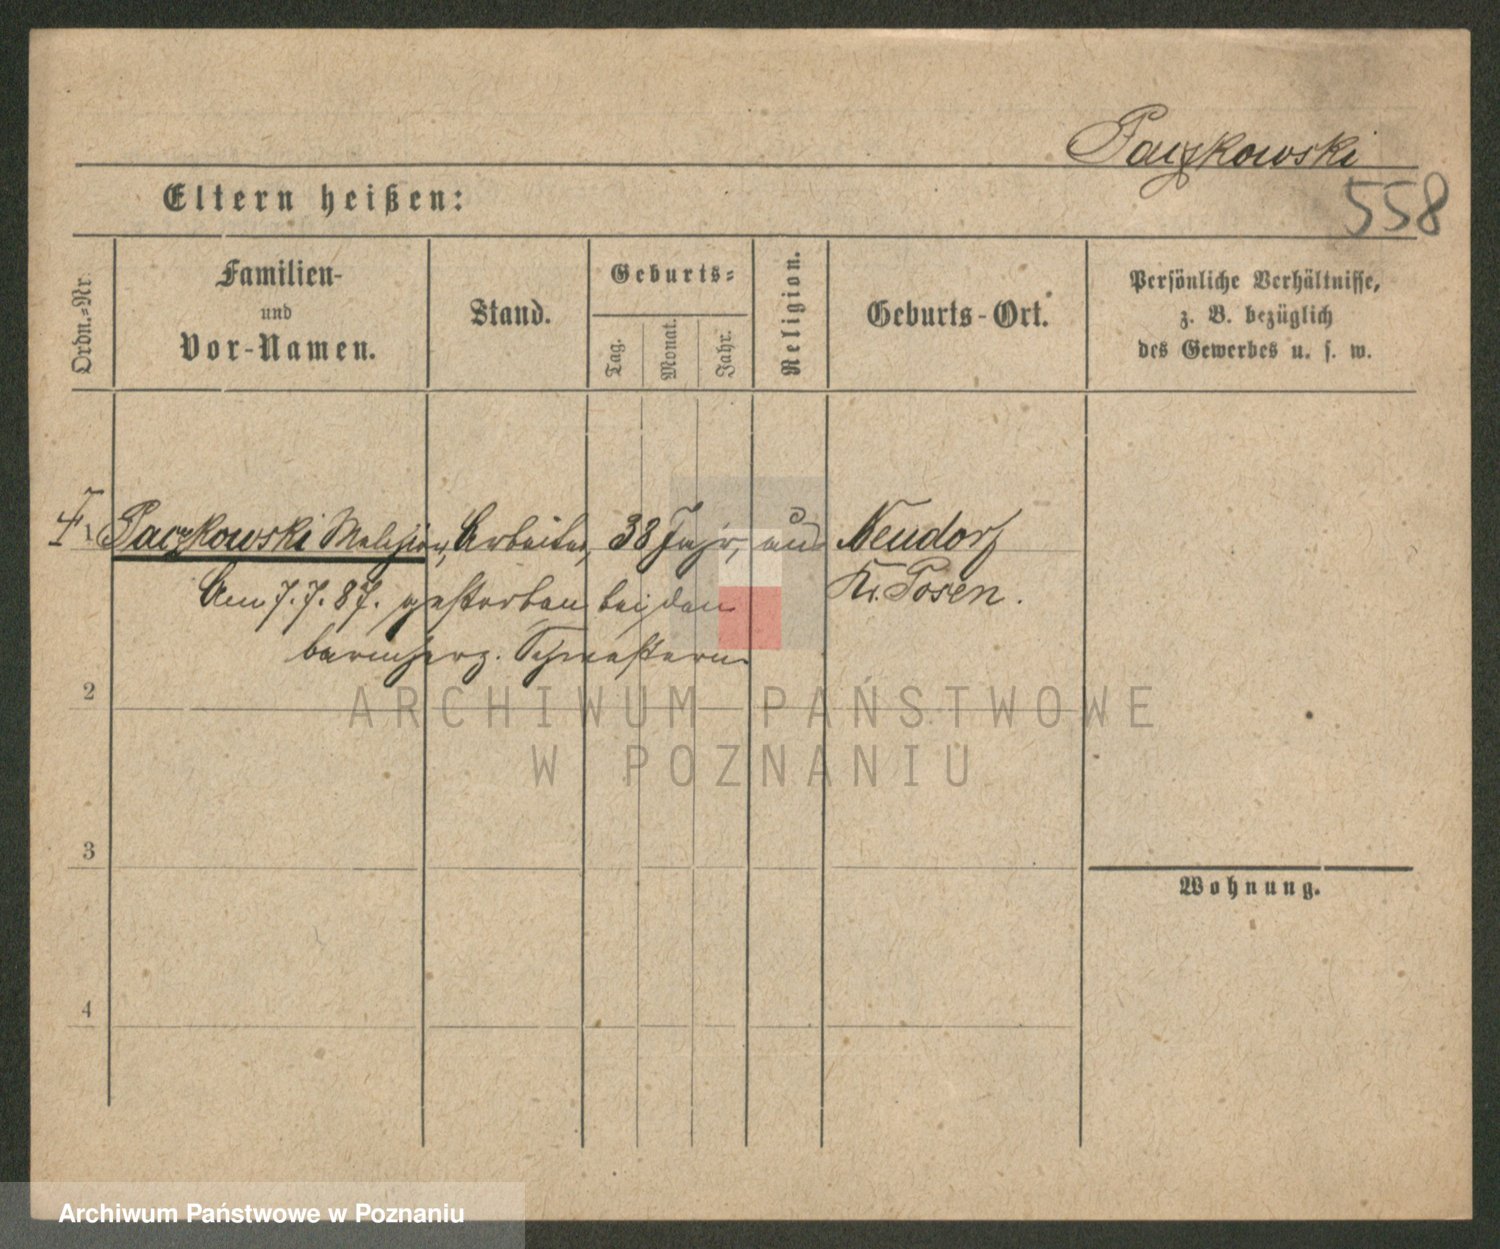 Paczkowski
558
Eltern heißen:
Ordn.=Nr.
Familien-
und
Vor-Namen.
Stand.
Geburts=
Tag.
Monat.
Jahr.
Religion.
Geburts-Ort.
Persönliche Verhältnisse,
z. B. bezüglich
des Gewerbes u. s. w.
Paczkowski Melchior, Arbeiter, 38 Jahr, aus Neudorf
Kr. Posen.
Am 7.7.87. gestorben bei den
barmherz. Schwestern.
2
3
4
Wohnung.
ARCHIWUM PAŃSTWOWE
W POZNANIU
Archiwum Państwowe w Poznaniu